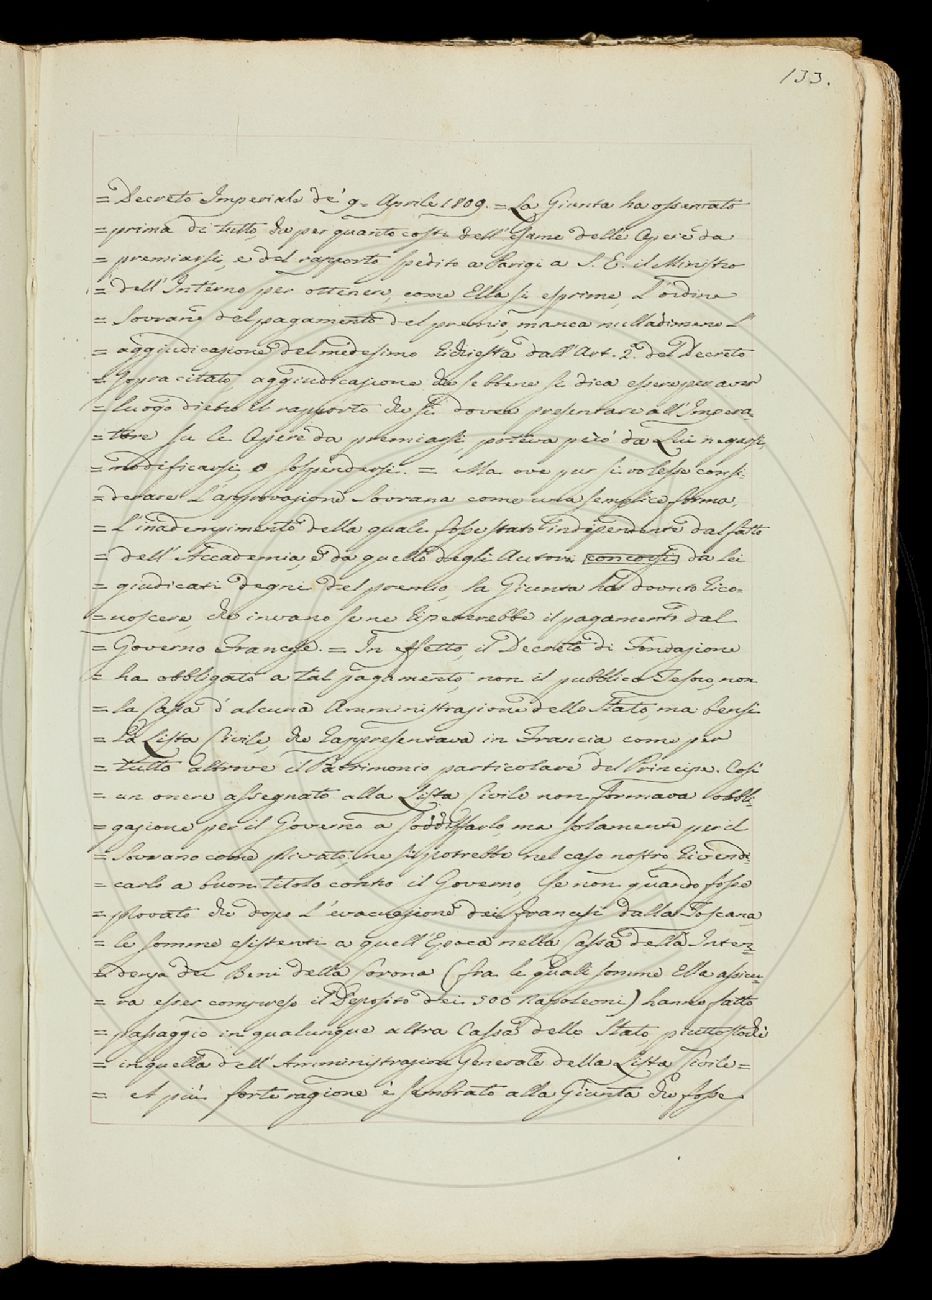 133.
= Decreto Imperiale de' 9. Aprile 1809. = La Giunta ha osservato
= prima di tutto, che per quanto costi dell'Esame delle Opere da
= premiarsi, e del rapporto spedito a Parigi a S. E. il Ministro
= dell'Interno per ottenere, come Ella si esprime, l'ordine
= Sovrano del pagamento del premio, manca nulladimeno l'
= aggiudicazione del medesimo richiesta dall'Art. 2.º del Decreto
= Sopracitato, aggiudicazione che sebbene si dica essere per aver
= luogo dietro il rapporto che si dovea presentare all'Impera-
= tore su le Opere da premiarsi, poteva però da Lui negarsi,
= modificarsi o sospendersi. = Ma ove pur si volesse consi-
= derare l'approvazione Sovrana come una semplice forma,
= l'inadempimento della quale fosse stato independente dal fatto
= dell'Accademia, e da quello degli Autori concorsi da lei
= giudicati degni del premio la Giunta ha dovuto rico-
= noscere, che invano se ne ripeterebbe il pagamento dal
= Governo Francese. = In effetto, il Decreto di Fondazione
= ha obbligato a tal pagamento, non il pubblico Tesoro, non
= la Cassa d'alcuna Amministrazione dello Stato, ma bensì
= la Lista Civile, che rappresentava in Francia, come per
= tutto altrove il Patrimonio particolare del Principe. Così
= un onere assegnato alla Lista Civile non formava obbli-
= gazione per il Governo a soddisfarlo, ma solamente per il
= Sovrano come privato, ne si potrebbe nel caso nostro rivendi-
= carlo a buon titolo contro il Governo, se non quando fosse
= provato che dopo l'evacuazione dei francesi dalla Toscana,
= le somme esistenti a quell'Epoca nella Cassa della Inten-
= denza dei Beni della Corona (fra le quali somme Ella assicu-
= ra esser compreso il Deposito dei 500 Napoleoni) hanno fatto
= passaggio in qualunque altra Cassa dello Stato, piuttostochè
= in quella dell'Amministrazione Generale della Lista Civile =
= et più forte ragione è sembrato alla Giunta che fosse